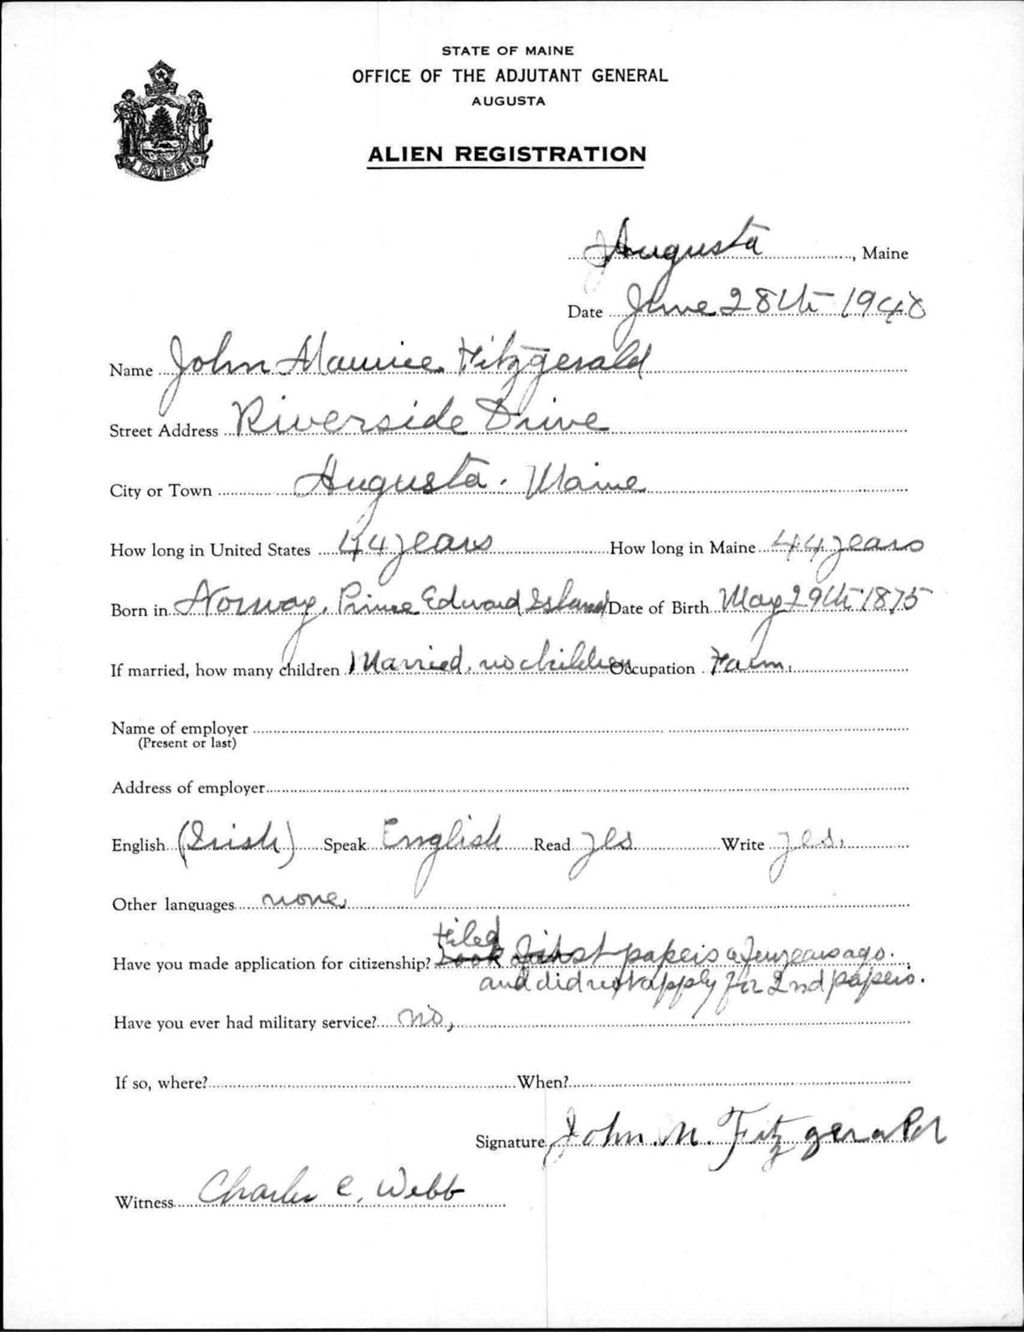 STATE OF MAINE
OFFICE OF THE ADJUTANT GENERAL
AUGUSTA
ALIEN REGISTRATION
MAINE
Augusta, Maine
Date June 28th 1940
Name John Maurice Fitzgerald
Street Address Riverside Drive
City or Town Augusta. Maine
How long in United States 44 years How long in Maine 44 years
Born in Norway, Prince Edward Island Date of Birth May 29th 1875
If married, how many children Married, no children Occupation Farm.
Name of employer
(Present or last)
Address of employer
English (Irish) Speak English Read yes Write yes.
Other languages none
Filed
Have you made application for citizenship? took first papers a few years ago.
and did not apply for 2nd papers.
Have you ever had military service? no,
If so, where? When?
Signature John M. Fitzgerald
Witness Charles C. Webb